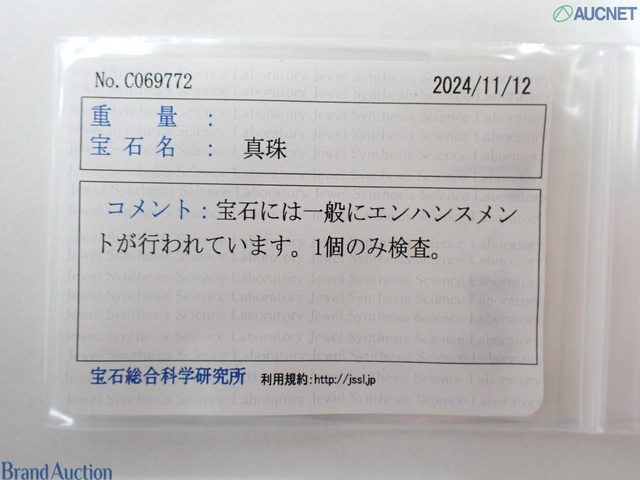 AUCNET
No.C069772 2024/11/12
重量：
宝石名： 真珠
コメント：宝石には一般にエンハンスメン
トが行われています。1個のみ検査。
宝石総合科学研究所 利用規約：http://jssl.jp
Brand Auction